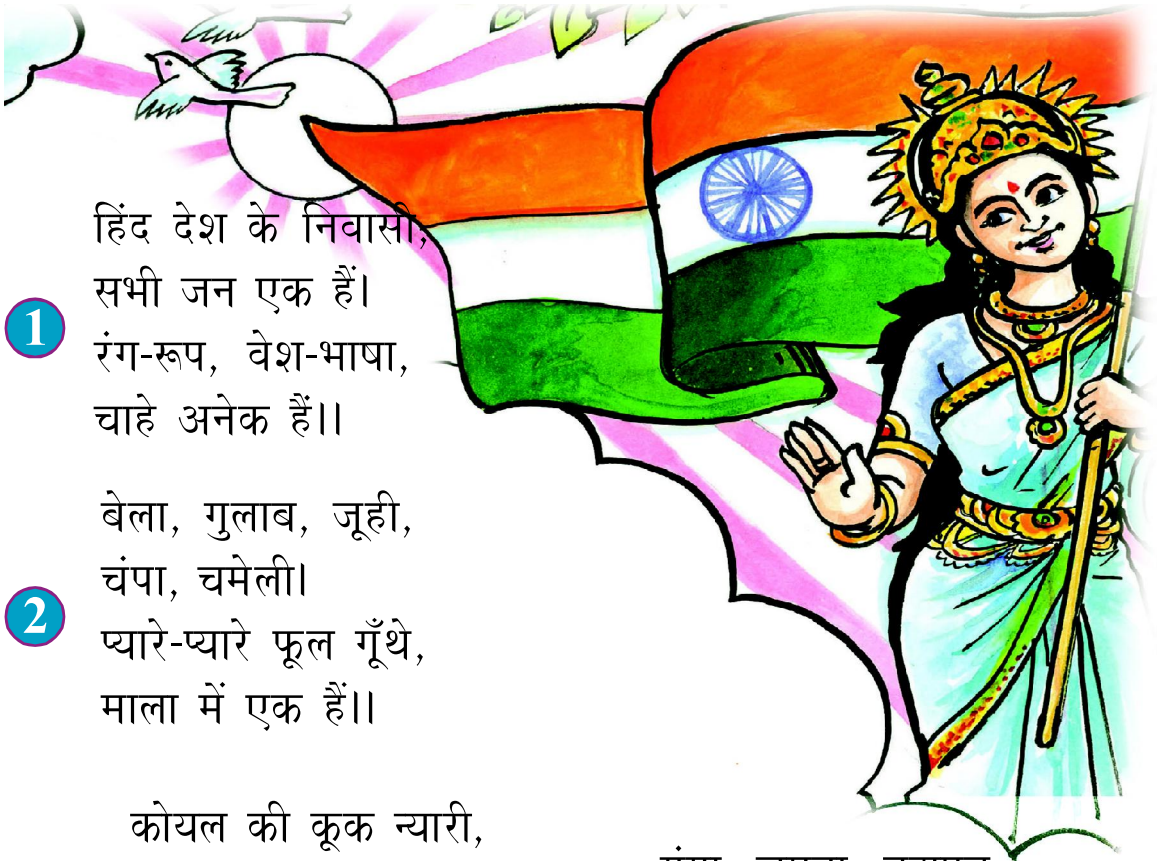 1
हिंद देश के निवासी,
सभी जन एक हैं।
रंग-रूप, वेश-भाषा,
चाहे अनेक हैं।।
2
बेला, गुलाब, जूही,
चंपा, चमेली।
प्यारे-प्यारे फूल गूँथे,
माला में एक हैं।।
कोयल की कूक न्यारी,